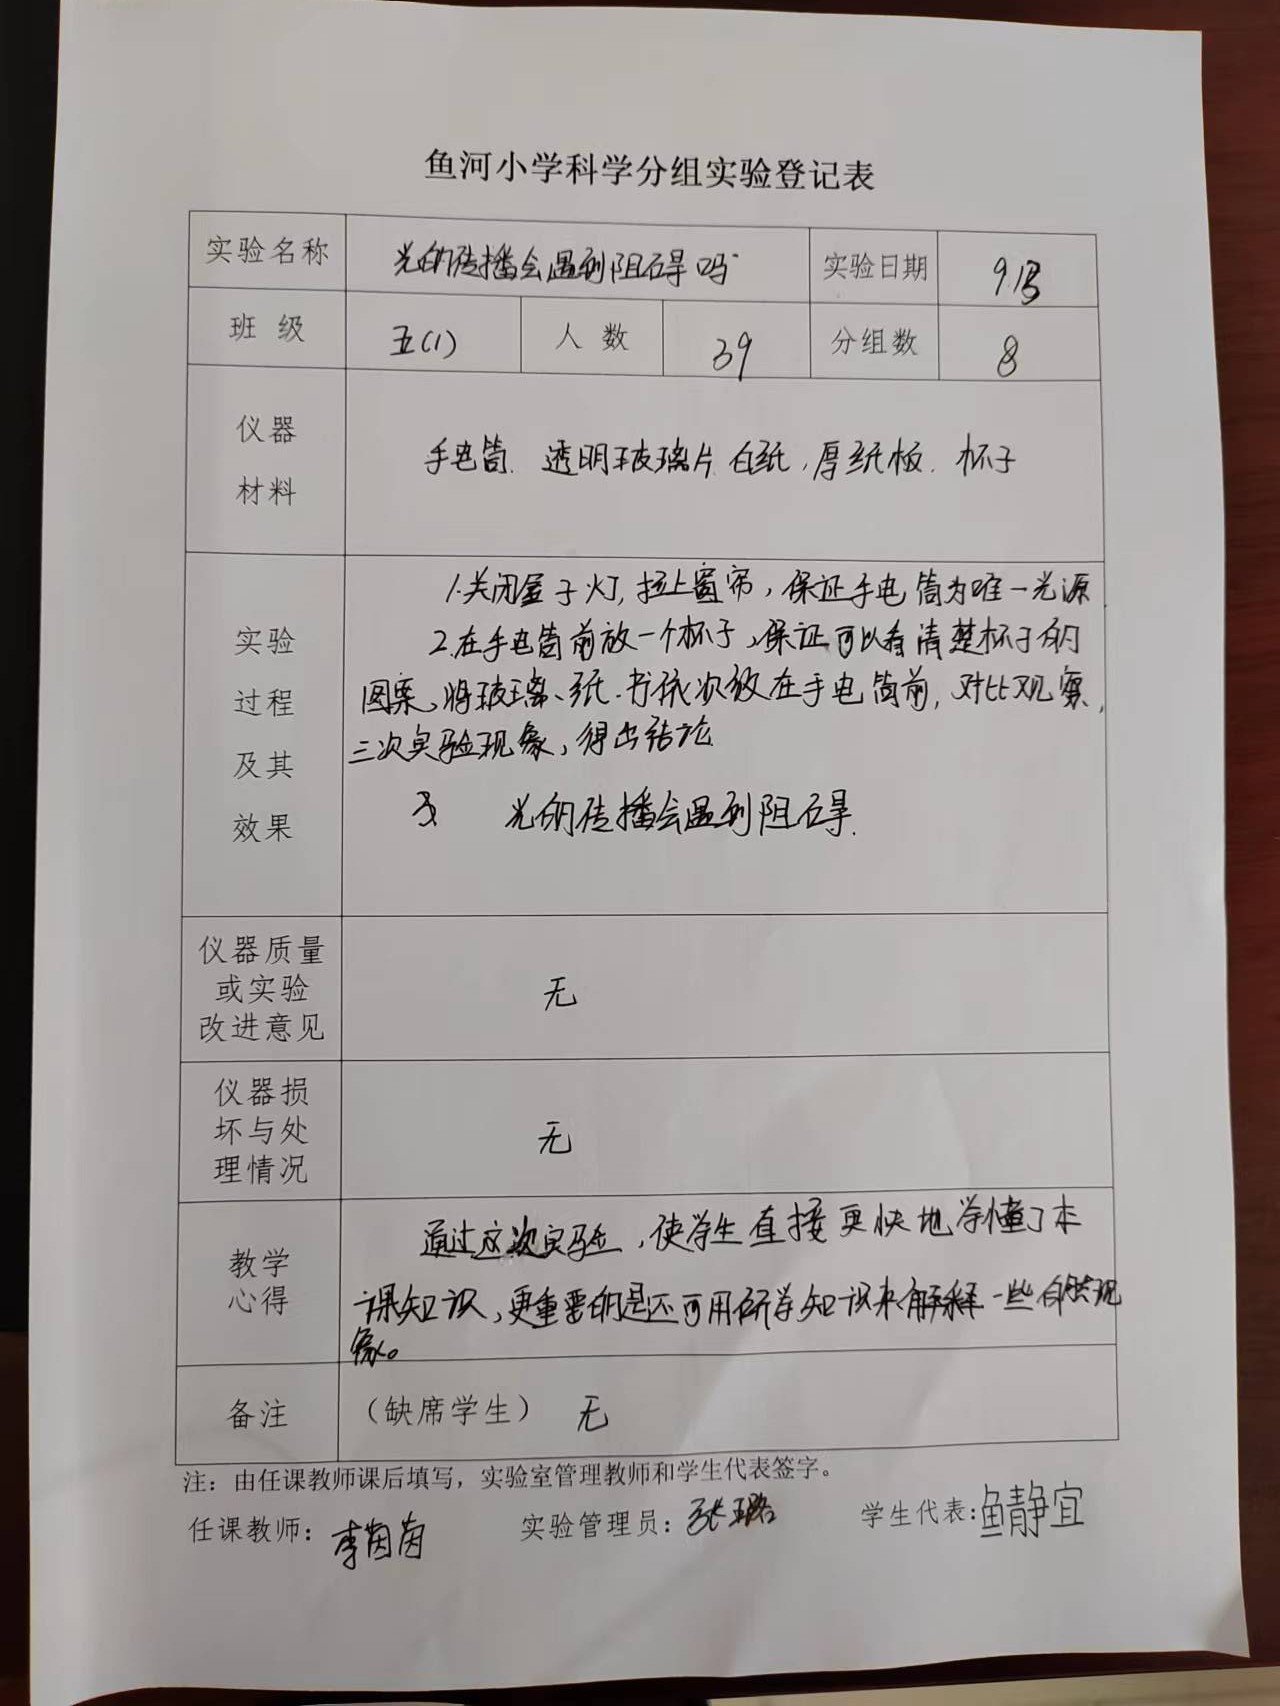 鱼河小学科学分组实验登记表
实验名称 光的传播会遇到阻碍吗 实验日期
班 级 五(1) 人 数 39 分组数 8
仪器
材料
手电筒、透明玻璃片、白纸,厚纸板、杯子
实验
过程
及其
效果
1.关闭盒子灯,拉上窗帘,保证手电筒为唯一光源
2.在手电筒前放一个杯子,保证可以看清楚杯子的
图案,将玻璃、纸、书依次放在手电筒前,对比观察,
三次实验现象,得出结论
3 光的传播会遇到阻碍.
仪器质量
或实验
改进意见
无
仪器损
坏与处
理情况
无
教学
心得
通过这次实验,使学生直接更快地学懂了本
课知识,更重要的是还可用所学知识来解释一些自然现
象。
备注 (缺席学生) 无
注:由任课教师课后填写,实验室管理教师和学生代表签字。
任课教师:李茵茵 实验管理员:张璐 学生代表:鱼静宜